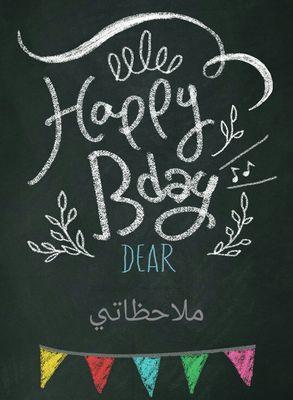 Happy
Bday
DEAR
ملاحظاتي